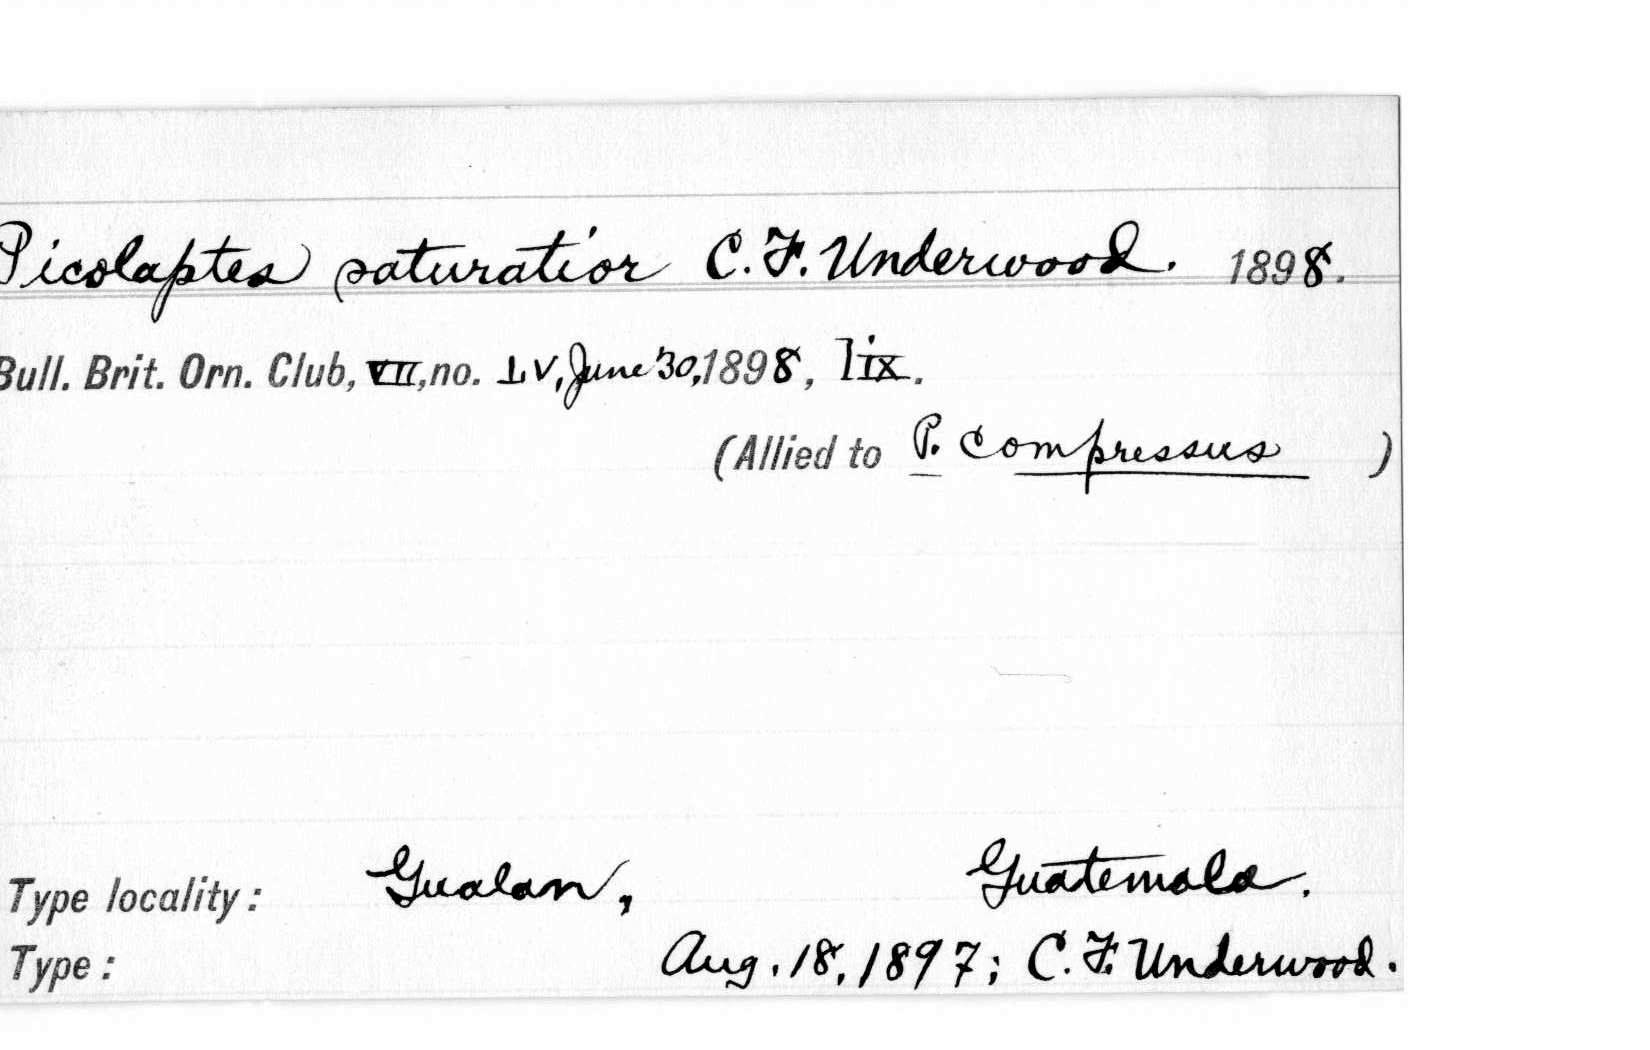 Picolaptes saturatior C. F. Underwood. 1898.
Bull. Brit. Orn. Club, VII, no. LV, June 30, 1898, lix.
(Allied to P. compressus )
Type locality: Gualan, Guatemala.
Type: Aug. 18, 1897; C. F. Underwood.